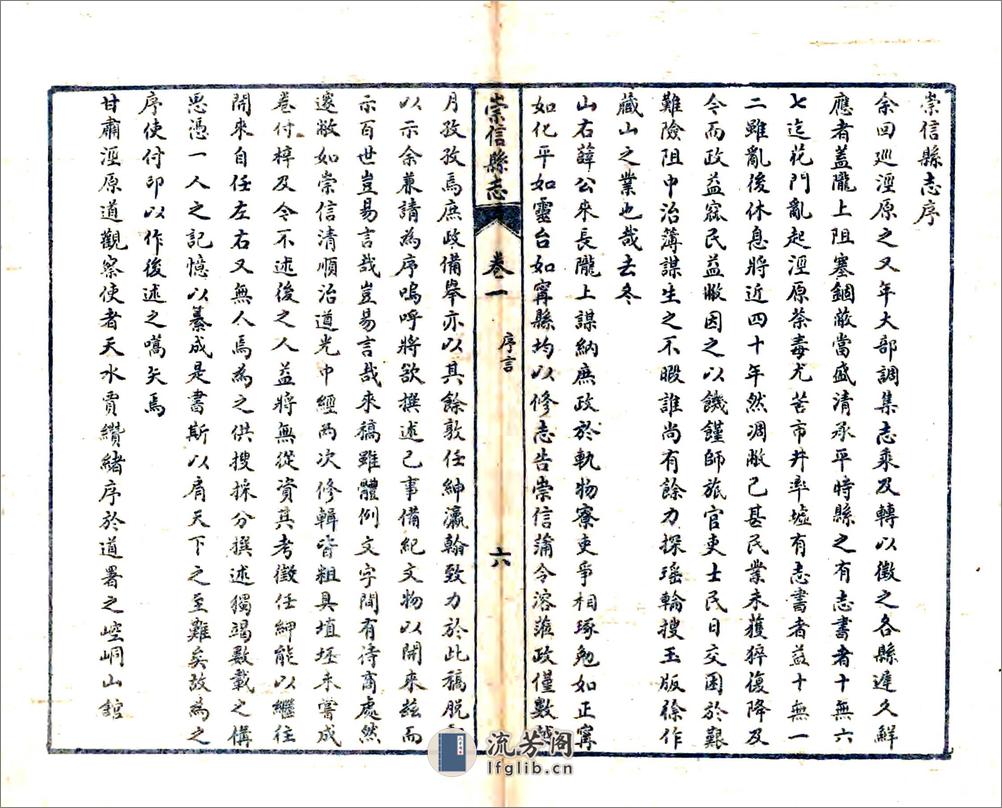 崇信縣志序
余回巡涇原之又年大部調集志乘及轉以徵之各縣遲久鮮
應者蓋隴上阻塞錮蔽當盛清承平時縣之有志書者十無六
七迄花門亂起涇原荼毒尤苦市井率墟有志書者益十無一
二雖亂後休息將近四十年然凋敝已甚民業未獲猝復降及
今而政益窳民益敝因之以饑饉師旅官吏士民日交困於艱
難險阻中治薄謀生之不暇誰尚有餘力探瑤輪搜玉版徐作
藏山之業也哉去冬
山右薛公來長隴上謀納庶政於軌物寮吏爭相琢勉如正寗
如化平如靈台如寗縣均以修志告崇信蒲令溶蒞政僅數越
崇信縣志
卷一
序言
六
月孜孜焉庶政備舉亦以其餘敦任紳瀛翰致力於此稿脫
以示余兼請為序嗚呼將欲撰述己事備紀文物以開來茲而
示百世豈易言哉豈易言哉來稿雖體例文字間有待商處然
邊敝如崇信清順治道光中經兩次修輯皆粗具埴坯未嘗成
卷付梓及今不述後之人益將無從資其考徵任紳能以繼往
開來自任左右又無人焉為之供搜採分撰述獨竭數載之構
思憑一人之記憶以纂成是書斯以肩天下之至難矣故為之
序使付印以作後述之嚆矢焉
甘肅涇原道觀察使者天水賈纘緒序於道署之崆峒山館
流芳阁
lfglib.cn